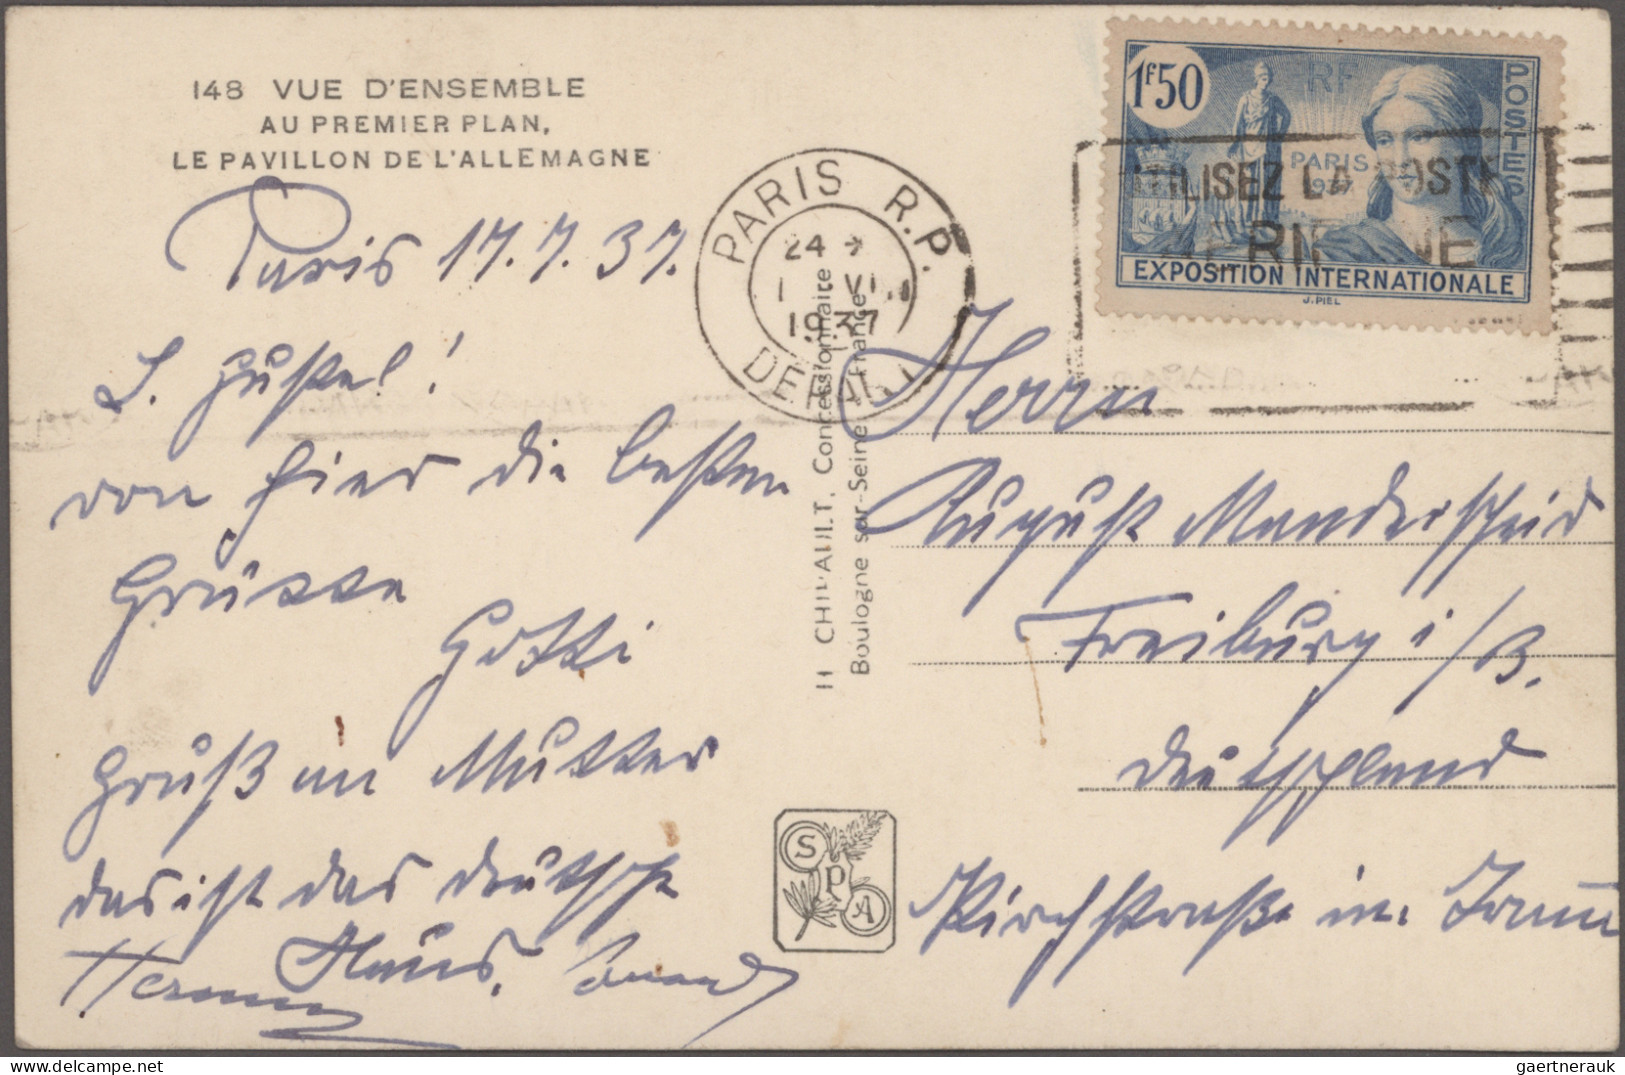 148 VUE D'ENSEMBLE
AU PREMIER PLAN,
LE PAVILLON DE L'ALLEMAGNE
Paris 17.7.37.
L. Gustel!
von hier die besten
Grüsse
Gotti
Gruß an Mutter
das ist das deutsche
Haus.
Hermann
PARIS R.P.
24
1937
DEPART
1f50
RF
POSTES
PARIS
1937
EXPOSITION INTERNATIONALE
J. PIEL
UTILISEZ LA POSTE
AERIENNE
H CHIPAULT, Concessionnaire
Boulogne sur-Seine France
SPA
Herrn
August Manderscheid
Freiburg i/B.
Deutschland
Kirchstraße
gaertnerauk